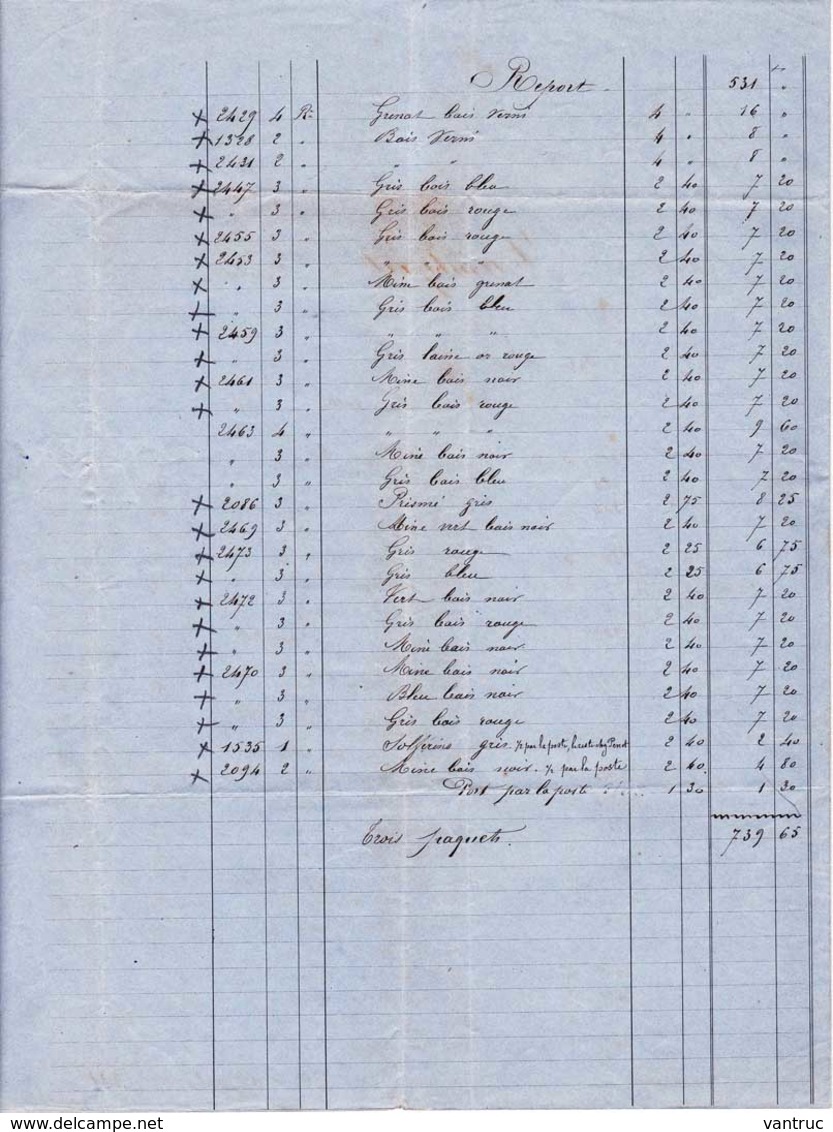 Report. 531 "
+ 2429 4 Rx Grenat bois verni 4 " 16 "
+ 1328 2 " Bois verni 4 " 8 "
+ 2431 2 " " " 4 " 8 "
+ 2447 3 " Gris bois bleu 2 40 7 20
+ " 3 " Gris bois rouge 2 40 7 20
+ 2455 3 " Gris bois rouge 2 40 7 20
+ 2453 3 " " " " 2 40 7 20
+ " 3 " Mine bois grenat 2 40 7 20
+ " 3 " Gris bois bleu 2 40 7 20
+ 2459 3 " " " " 2 40 7 20
+ " 3 " Gris laine or rouge 2 40 7 20
+ 2461 3 " Mine bois noir 2 40 7 20
+ " 3 " Gris bois rouge 2 40 7 20
2463 4 " " " " 2 40 9 60
" 3 " Mine bois noir 2 40 7 20
" 3 " Gris bois bleu 2 40 7 20
+ 2086 3 " Prismé gris 2 75 8 25
+ 2469 3 " Mine vert bois noir 2 40 7 20
+ 2473 3 " Gris rouge 2 25 6 75
+ " 3 " Gris bleu 2 25 6 75
+ 2472 3 " Vert bois noir 2 40 7 20
+ " 3 " Gris bois rouge 2 40 7 20
+ " 3 " Mine bois noir 2 40 7 20
+ 2470 3 " Mine bois noir 2 40 7 20
+ " 3 " Bleu bois noir 2 40 7 20
+ " 3 " Gris bois rouge 2 40 7 20
+ 1535 1 " Solférino gris ½ par la poste, 2 40 2 40
+ 2094 2 " Mine bois noir. ½ par la poste 2 40 4 80
Port par la poste 1 30 1 30
Trois paquets. 739 65
delcampe.net
vantruc